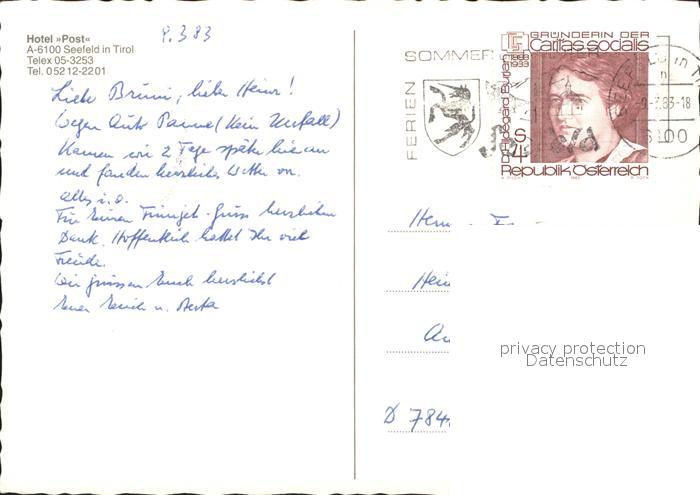 Hotel »Post«
A-6100 Seefeld in Tirol
Telex 05-3253
Tel. 05212-2201
9.3.83
Liebe Brüni, lieber Heinz!
Wegen Auto Panne (Kein Unfall)
Kamen wir 2 Tage später hier an
und fanden herrliches Wetter vor.
alles i.O.
Für Deinen Gruss herzlichen
Dank. Hoffentlich hattet Ihr viel
Freude.
Wir grüssen Euch herzlichst
Euer Erich u.
SOMMER
FERIEN
GRÜNDERIN DER
Caritas socialis
1883
1933
Dr. Hildegard Burjan
S 4
Republik Österreich
6100
Herrn
Hein
D 784
privacy protection
Datenschutz